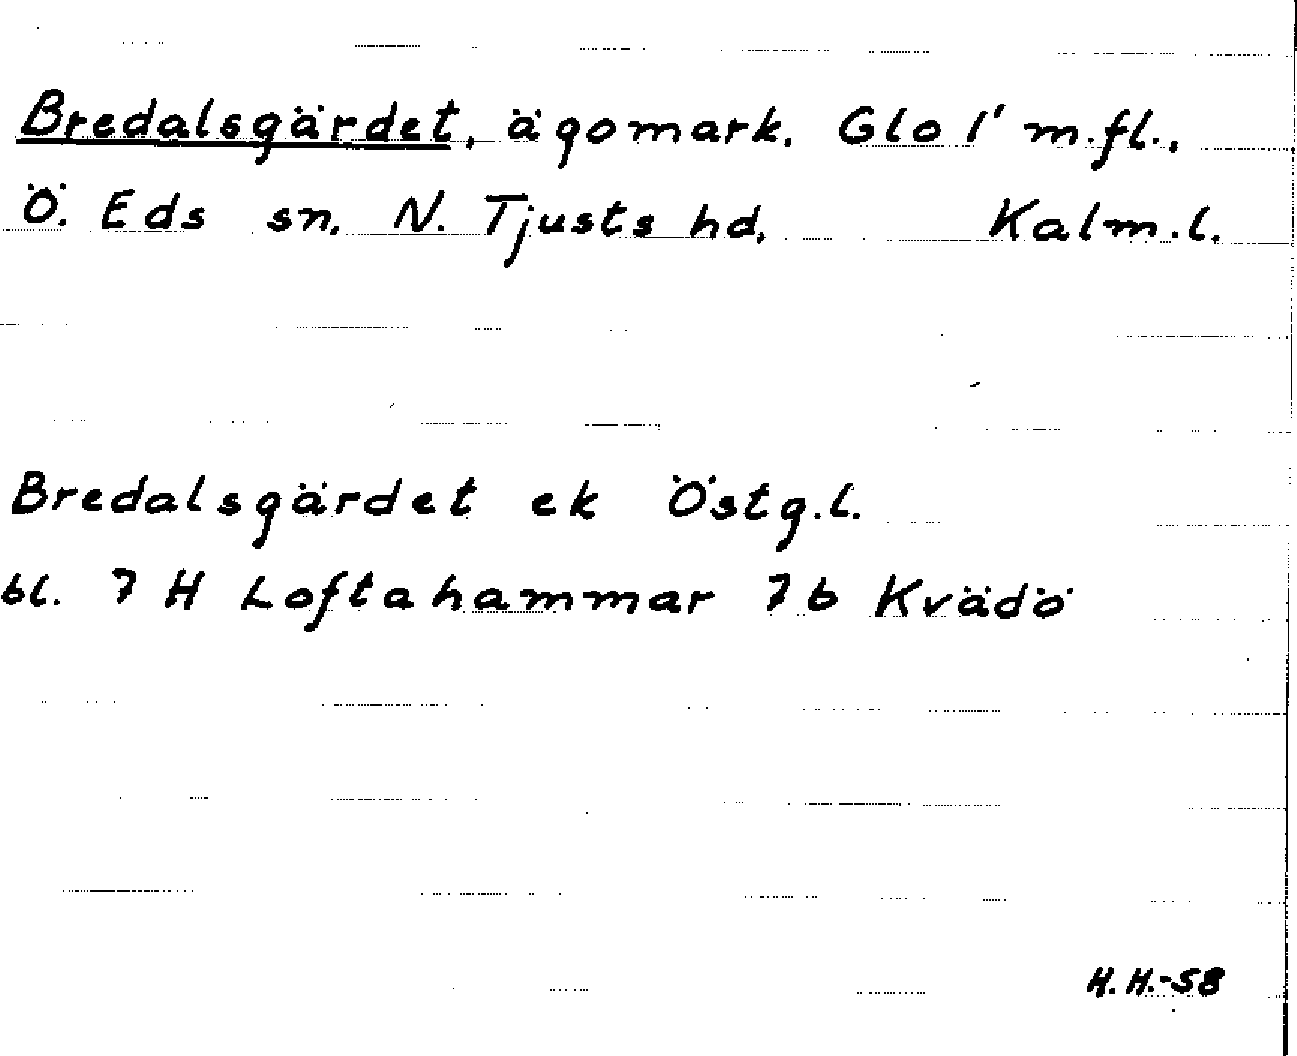 Bredalsgärdet, ägomark. Glo 1' m.fl.,
Ö. Eds sn. N. Tjusts hd, Kalm.l.
Bredalsgärdet ek Östg.l.
bl. 7 H Loftahammar 7b Kvädö
H.H.-58